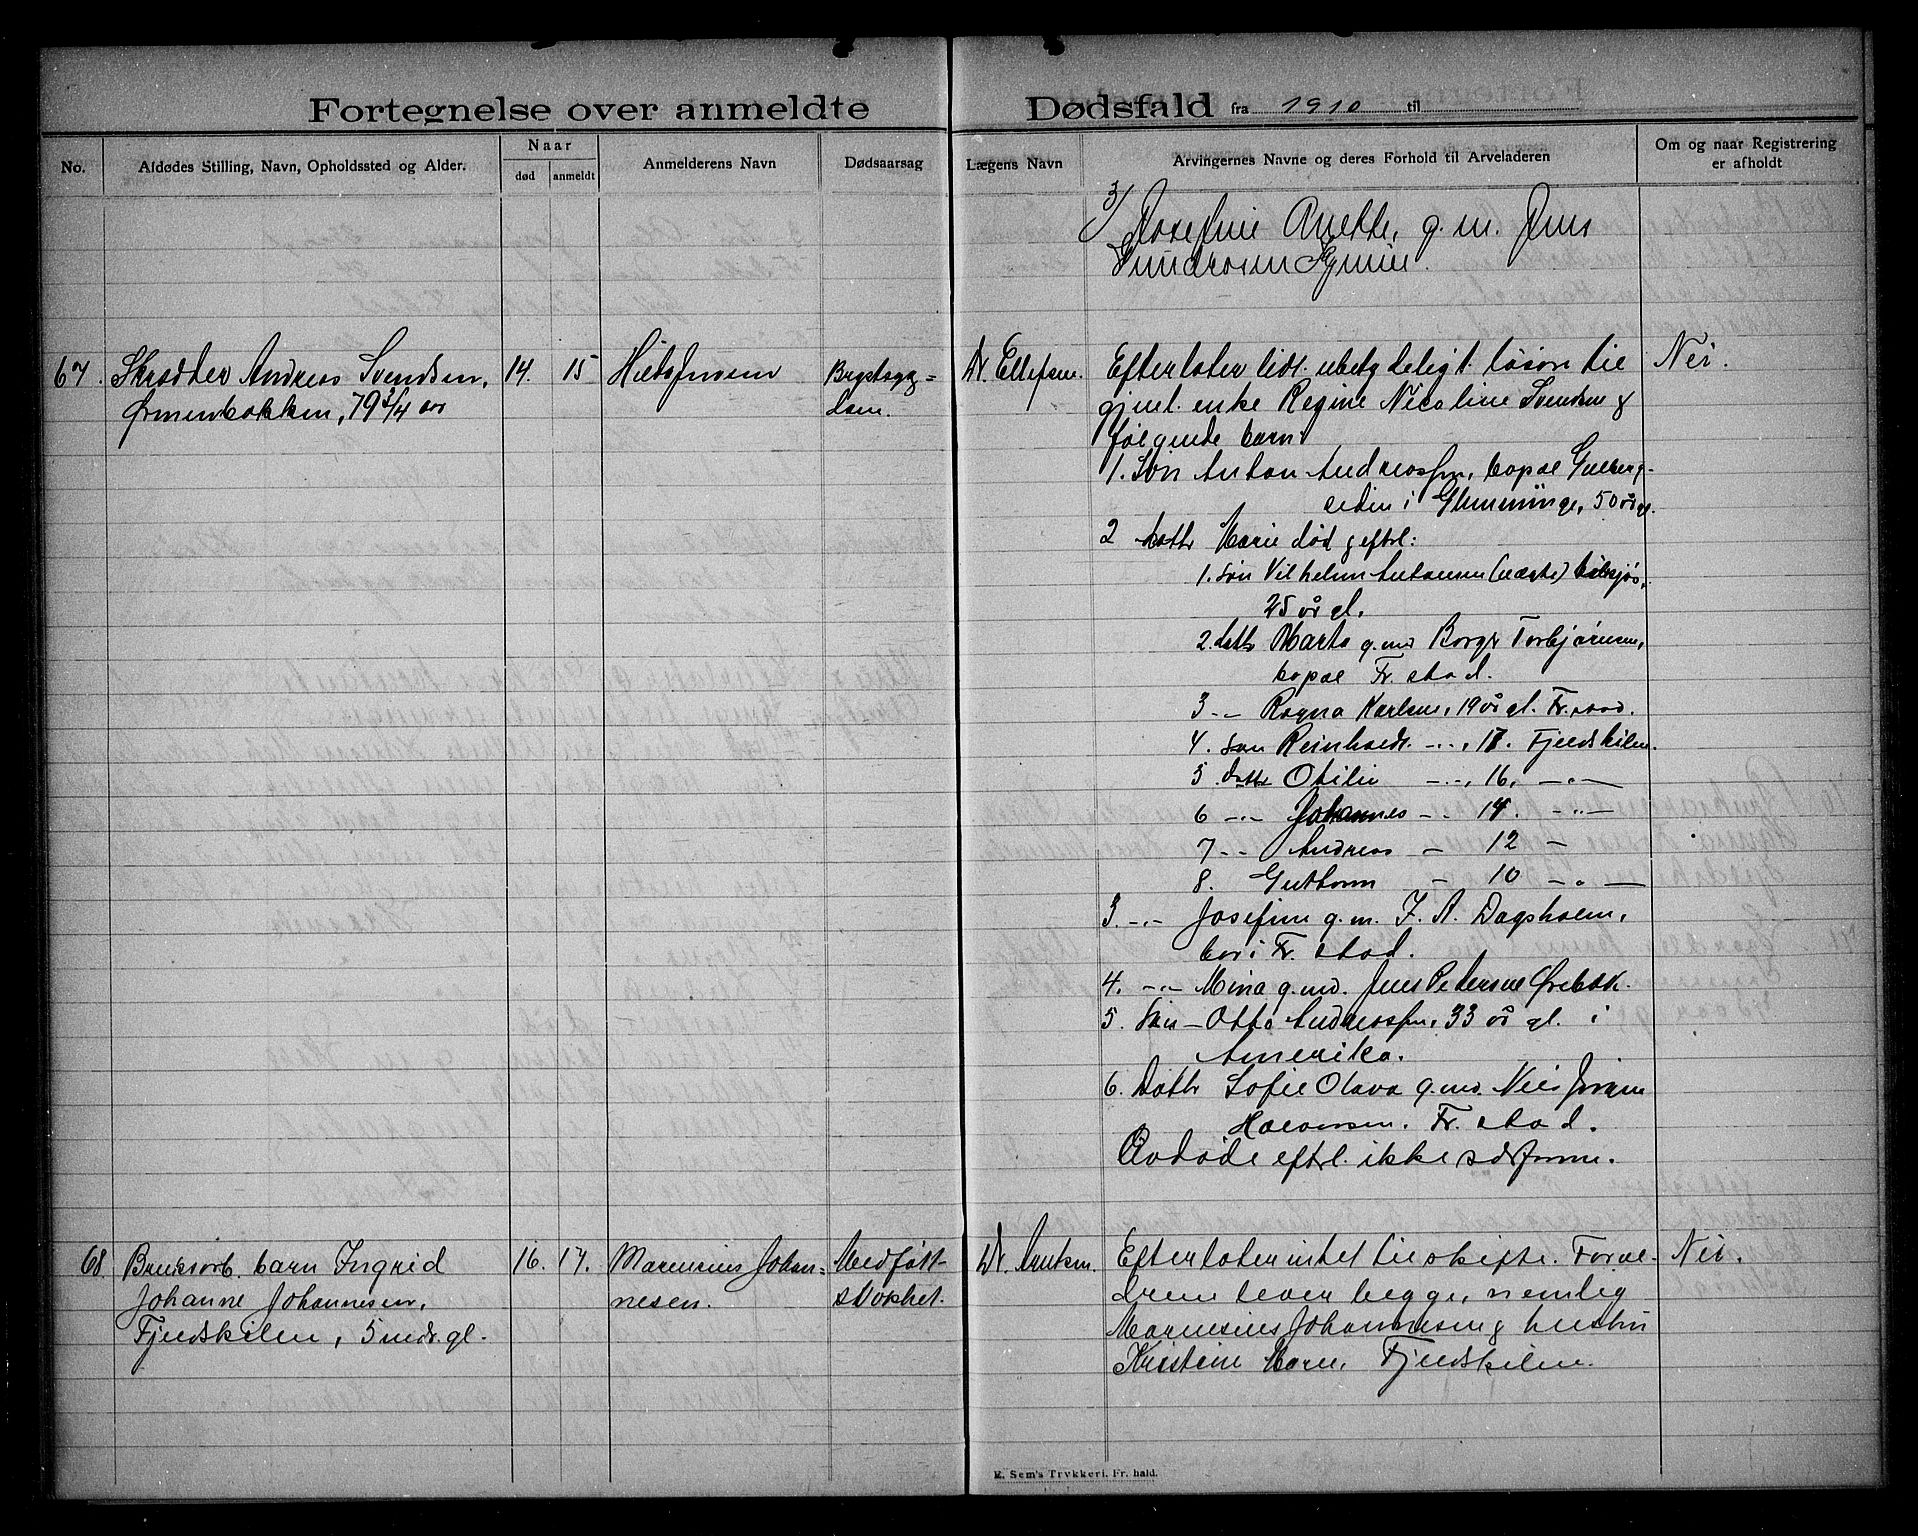 Fortegnelse over anmeldte Dødsfald fra 1910 til
No.
Afdødes Stilling, Navn, Opholdssted og Alder.
Naar
død
anmeldt
Anmelderens Navn
Dødsaarsag
Lægens Navn
Arvingernes Navne og deres Forhold til Arveladeren
Om og naar Registrering
er afholdt
3/
Josefine Anette, g. m. Jens
67. Skrædder Andreas Svendsen,
Ørmenbakken, 79 3/4 aar
14. 15
Brystsyg=
dom.
Dr. Ellefsen.
Efterlater lidt ubetydeligt løsøre til
gjenl. enke Regine Nicoline Svendsen &
følgende barn:
1. Søn Anton Andreassen, bopæl Gulberg-
eden i Glemminge, 50 år gl.
2 Dattr Marie død & eftrl:
1. søn Vilhelm Antonsen (uægte)
25 år gl.
2. dattr Marta g. med Borger Torbjørnsen,
bopæl Fr. stad.
3 -"- Ragna Karlsen, 19 år gl. Fr. stad.
4. søn Reinhardt -"-, 17. Fjeldskilen.
5 dattr Otilie -"-, 16, -"-
6 -"- Johannes -"- 14. -"-
7 -"- Andreas - 12 -
8. Guthorm - 10 -"-
3 -"- Josefine g. m. F. A. Dagsholm,
bor i Fr. stad.
4. -"- Mina g. med. Jens Pedersen Ørebæk.
5. Søn - Otto Andreassen, 33 år gl. i
Amerika.
6. Dattr Sofie Olava g. med. Nils Jørgen
Halvorsen. Fr. stad.
Avdøde eftrl. ikke særform.
Nei.
68. Bruksarb. barn Ingrid
Johanne Johannesen,
Fjeldskilen, 5 mdr. gl.
16. 17.
Marensius Johan=
nesen.
Medfødt
svakhet.
Dr. Arntsen.
Efterlater intet til skifte. Foræl-
drene lever begge, nemlig
Marensius Johannesen & hustru
Kristine Marie, Fjeldskilen.
Nei.
E. Sem's Trykkeri. Fr. hald.